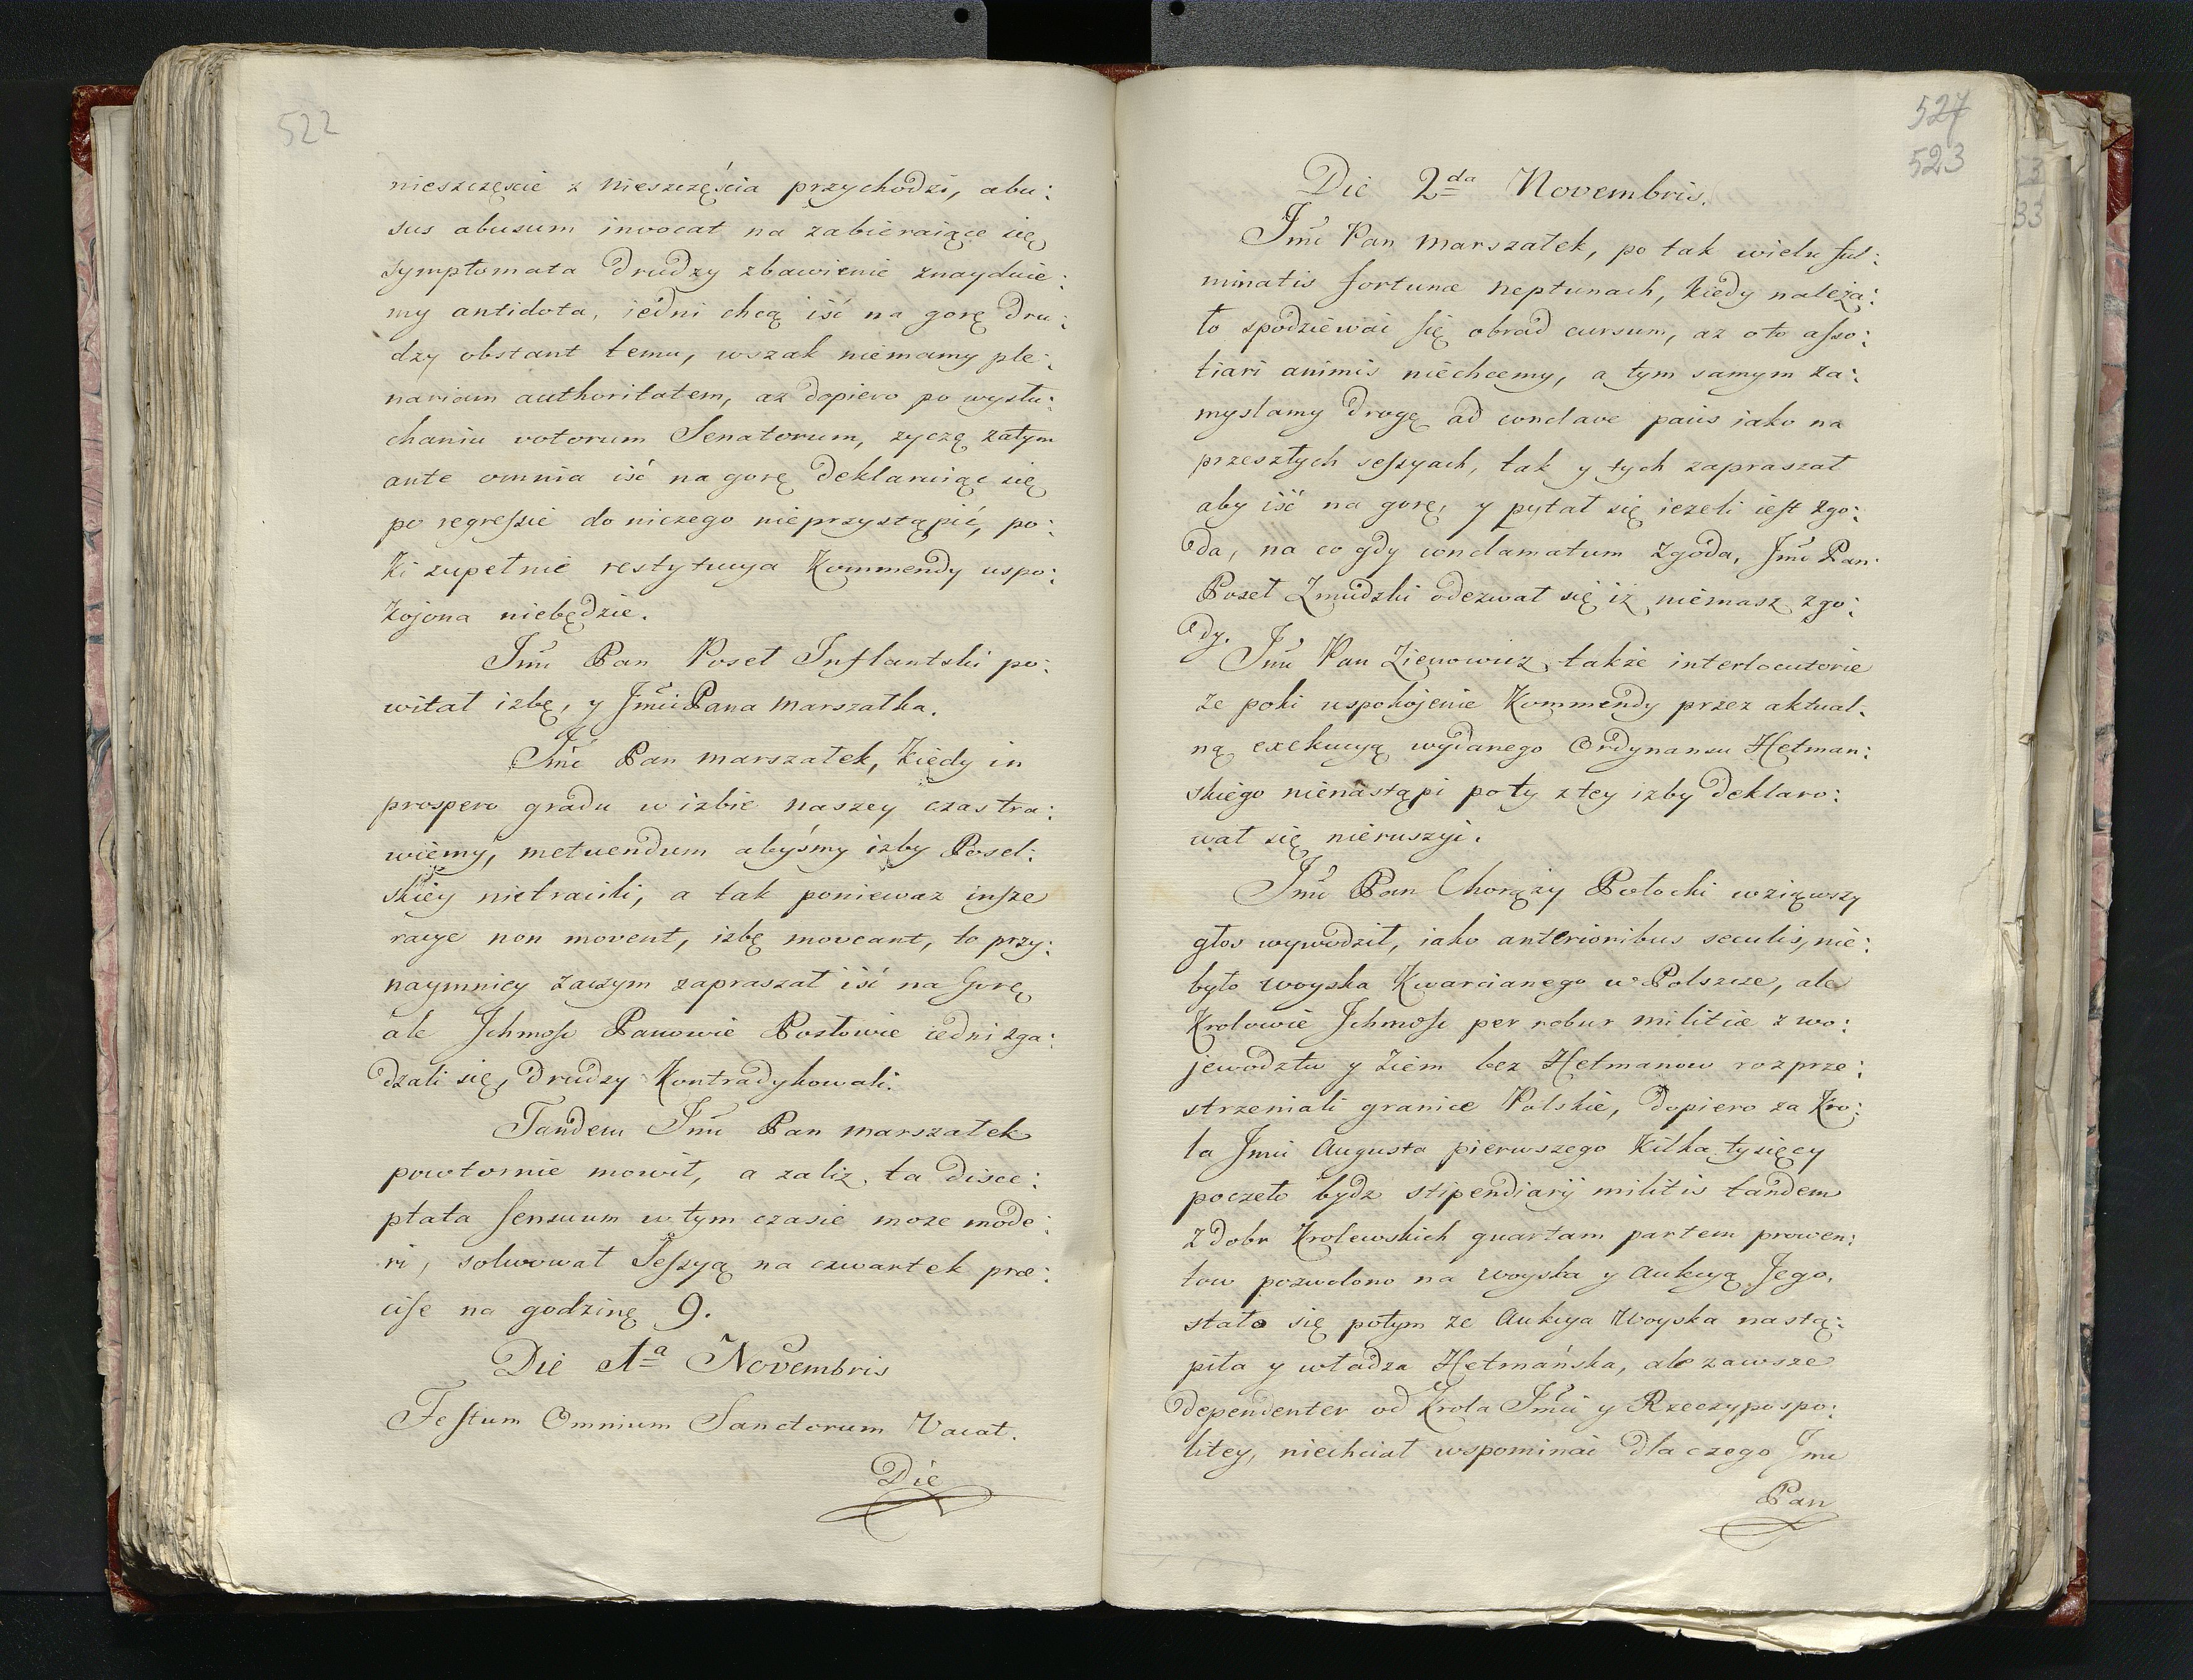 522
nieszczęscie z nieszczęścia przychodzi, abu:
sus abusum invocat na zabieraiące się
symptomata drudzy zbawienie znayduie:
my antidota, iedni chcą iść na gorę dru:
dzy obstant temu, wszak niemamy ple:
nariam authoritatem, az dopiero po wysłu:
chaniu votorum Senatorum, zyczę zatym
ante omnia iść na gorę deklaruiąc się
po regressie do niczego nieprzystąpić, po:
ki zupełnie restytucya Kommendy uspo:
kojona niebędzie.
Jmć Pan Poseł Inflantski po:
witał izbę, y Jmći Pana Marszałka.
Jmć Pan Marszałek, kiedy in
prospero gradu w izbie naszey czas tra:
wiemy, metuendum abyśmy izby Posel:
skiey nietracili, a tak poniewaz insze
racye non movent, izbę moveant, to przy:
naymniey zaczym zapraszał iść na Gorę,
ale Jchmość Panowie Posłowie iedni zga:
dzali się, drudzy kontradykowali.
Tandem Jmć Pan Marszałek
powtornie mowił, a zaliz ta disce:
ptata sensuum w tym czasie moze mode:
ri, solwował Sessyą na czwartek præ:
cise na godzinę 9.
Die 1a Novembris
Festum Omnium Sanctorum Vacat.
Die
527
523
Die 2da Novembris.
Jmć Pan Marszałek, po tak wielu ful:
minatis fortunæ Neptunach, kiedy należa:
ło spodziewać się obrad cursum, az oto asso:
tiari animis niechcemy, a tym samym za:
myslamy drogę ad conclave pacis iako na
przeszłych sessyach, tak y tych zapraszał
aby iść na gorę, y pytał się iezeli iest zgo:
da, na co gdy conclamatum zgoda, Jmć Pan
Poseł Zmudzki odezwał się iz niemasz zgo:
dy.
Jmć Pan Zienowicz takze interlocutorie
ze poki uspokojenie Kommendy przez aktual:
ną exekucyą wydanego Ordynansu Hetman:
skiego nienastąpi poty z tey izby deklaro:
wał się nieruszyć.
Jmć Pan Chorąży Połocki wziąwszy
głos wywodził, iako anterioribus seculis, nie:
było woyska Kwarcianego w Polszcze, ale
Krolowie Jchmość per robur militiæ z wo:
jewodztw y Ziem bez Hetmanow rozprze:
strzeniali granice Polskie, dopiero za Kro:
la Jmci Augusta pierwszego kilka tysięcy
poczeło bydz stipendiarij militis tandem
z Dobr Krolewskich quartam partem prowen:
tow pozwolono na woyska y Aukcyą Jego,
stało się potym ze Aukcya Woyska nastą:
piła y władza Hetmańska, ale zawsze
dependenter od Krola Jmći y Rzeczypospo:
litey, niechciał wspominać dla czego Jmć
Pan